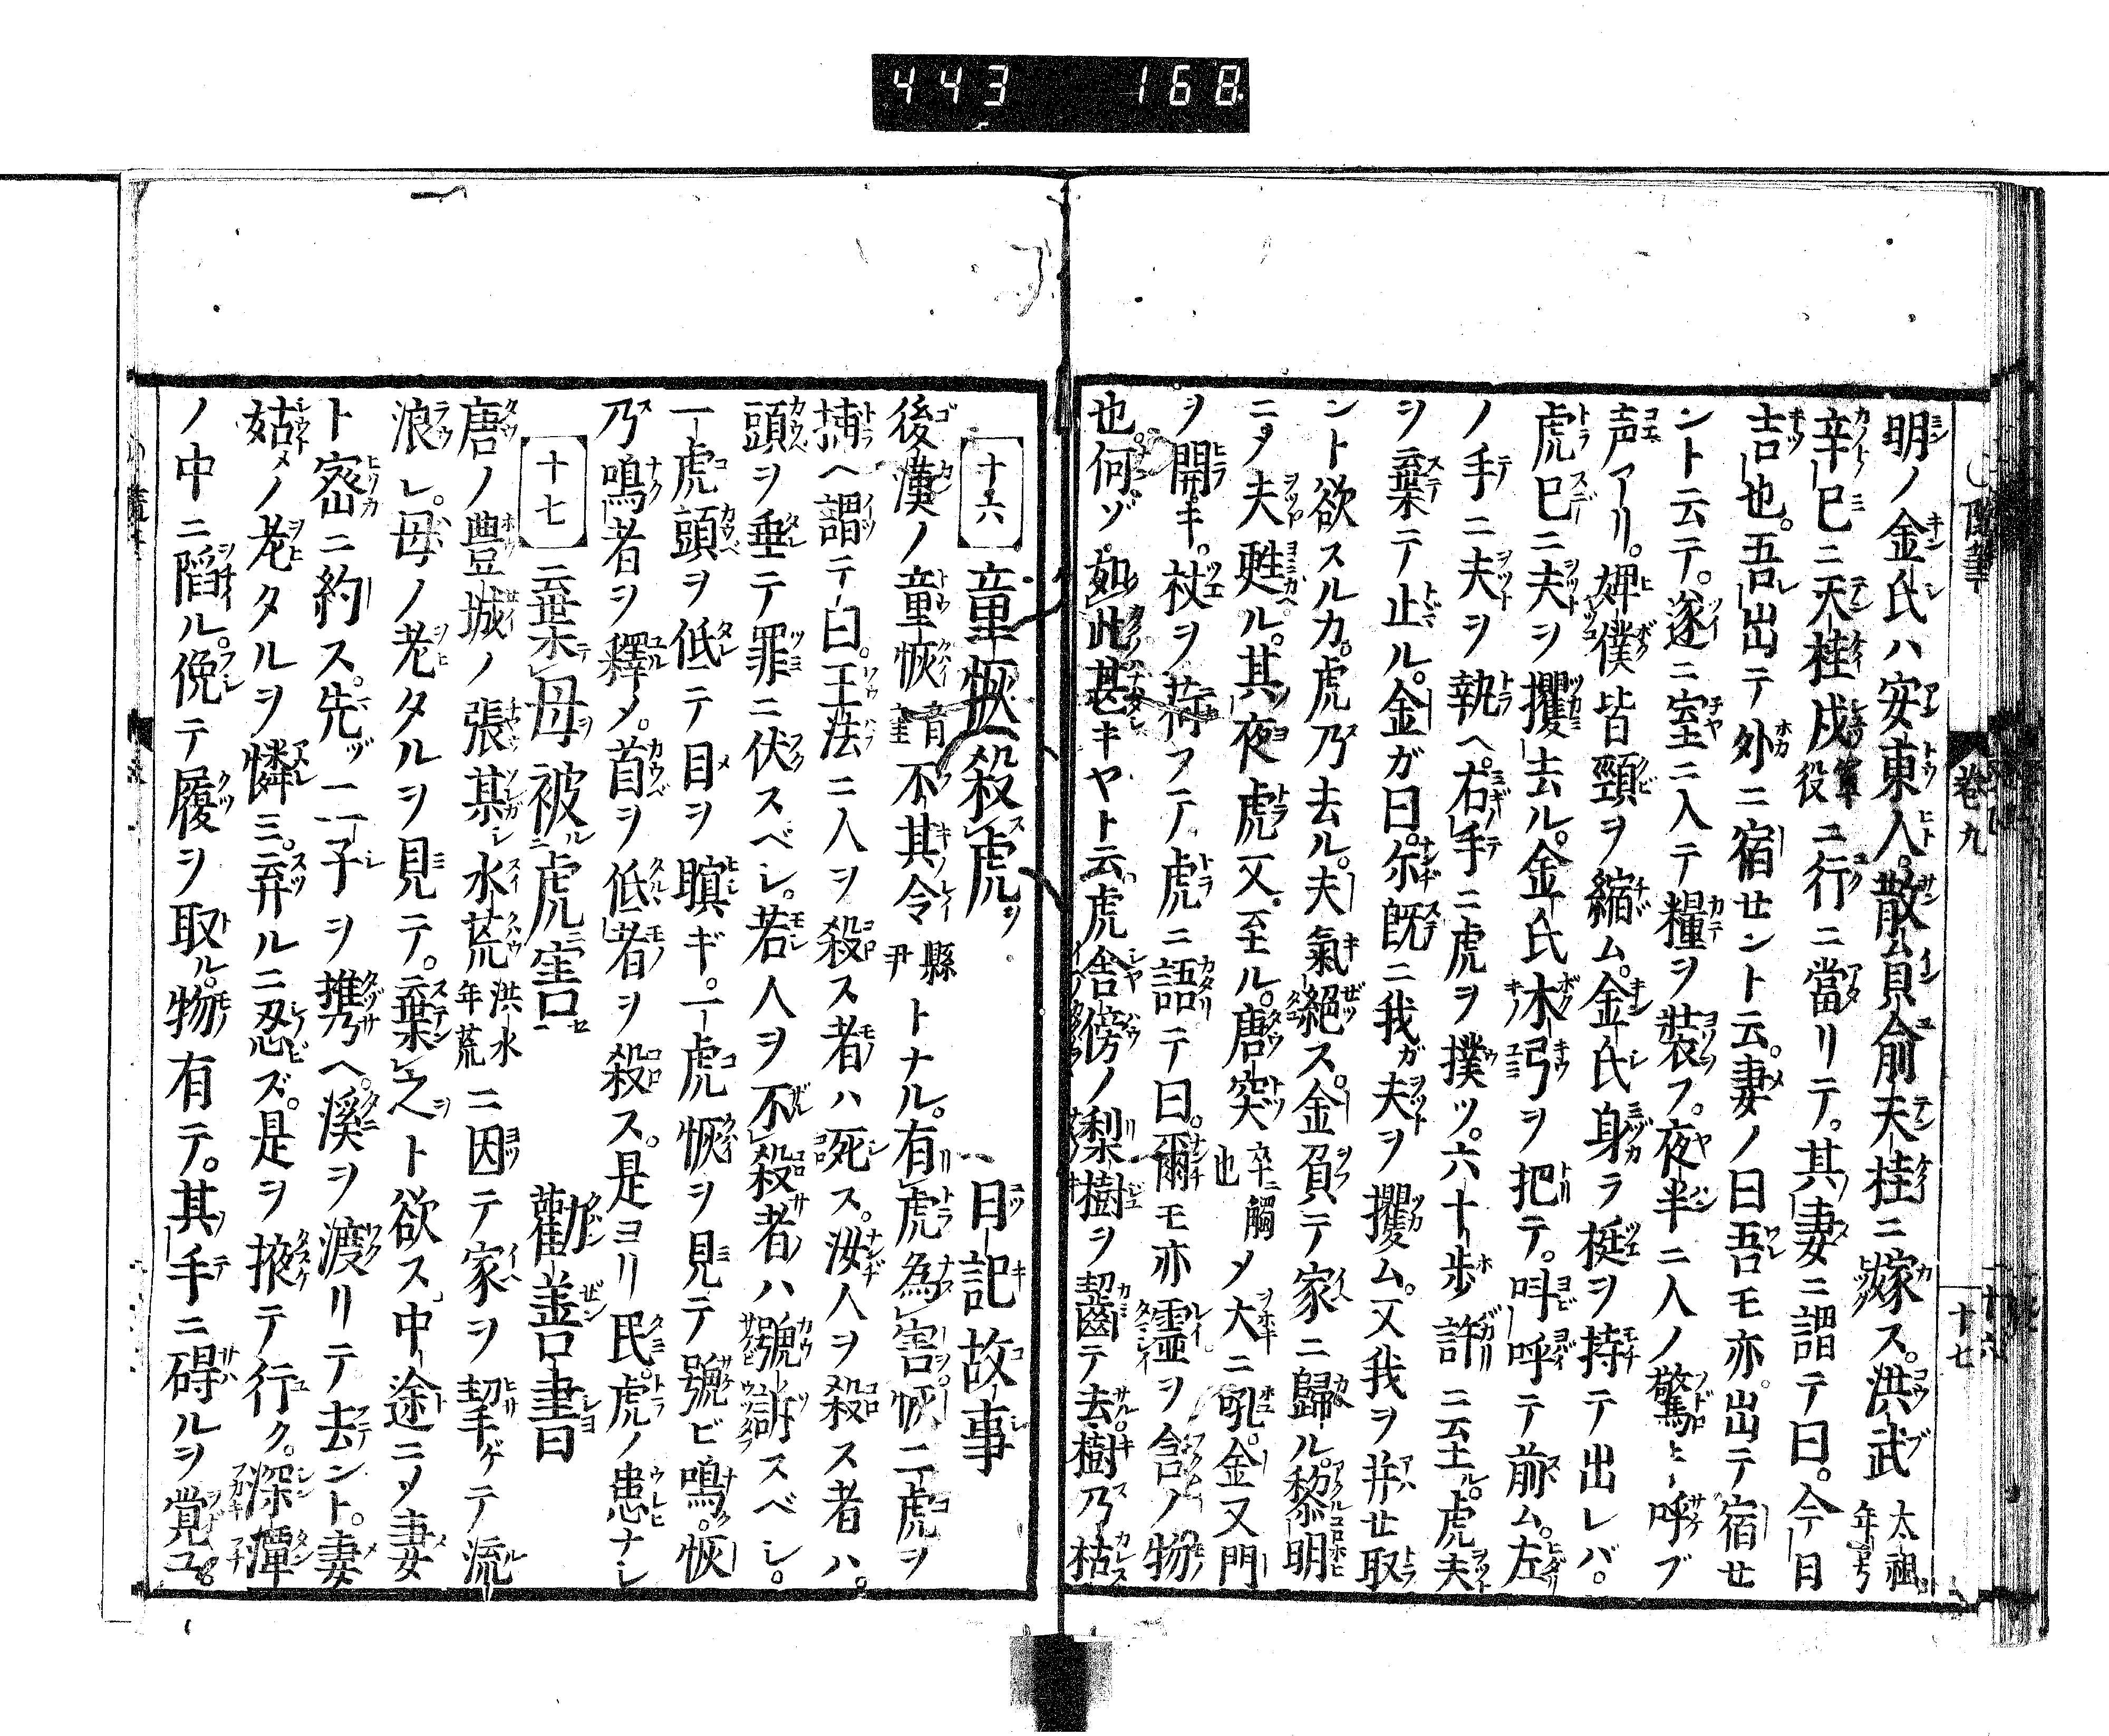 443 168
明ノ金氏ハ安東人。散員俞天桂ニ嫁ス。洪武太祖年号
辛巳ニ天桂戍軍役ニ行ニ當リテ。其妻ニ謂テ曰。今日
吉也。吾出テ外ニ宿せント云。妻ノ曰吾モ亦。出テ宿せ
ント云テ。遂ニ室ニ入テ糧ヲ裝フ。夜半ニ人ノ驚ヒ呼ブ
声アリ。婢僕皆頸ヲ縮ム。金氏身ラ梃ヲ持テ出レバ。
虎巳ニ夫ヲ攫去ル。金氏木弓ヲ把テ。呌呼テ前ム。左
ノ手ニ夫ヲ執ヘ。右手ニ虎ヲ撲ツ。六十歩許ニ至ル。虎夫
ヲ棄テ止ル。金ガ曰。尓既ニ我ガ夫ヲ攫ム。又我ヲ并せ取
ント欲スルカ。虎乃去ル。夫氣絕ス。金負テ家ニ歸ル。黎明
ニ〆夫甦ル。其夜虎又至ル。唐突卒ニ觸也〆大ニ吼。金又門
ヲ開キ。杖ヲ荷フテ虎ニ語テ曰。爾モ亦霊ヲ含ノ物
也何ゾ如此甚キヤト云虎舎傍ノ梨樹ヲ齧テ去樹乃枯
巻九
十七
十六 童恢殺虎 日記故事
後漢ノ童恢音圭不其令縣尹トナル。有虎為害恢二虎ヲ
捕ヘ謂テ曰。王法ニ人ヲ殺ス者ハ死ス。汝人ヲ殺ス者ハ。
頭ヲ垂テ罪ニ伏スベシ。若人ヲ不殺者ハ號訴スベシ。
一虎頭ヲ低テ目ヲ瞑ギ。一虎恢ヲ見テ號ビ鳴。恢
乃鳴者ヲ釋〆。首ヲ低者ヲ殺ス。是ヨリ民虎ノ患ナシ
十七 棄母被虎害 勸善書
唐ノ豊城ノ張某水荒洪水年荒ニ因テ家ヲ挈ゲテ流
浪レ。母ノ老タルヲ見テ。棄之ト欲ス中途ニ〆妻
ト密ニ約ス。先ヅ二子ヲ携ヘ。溪ヲ渡リテ去ント。妻
姑ノ老タルヲ憐ミ。弃ルニ忍ビズ。是ヲ掖テ行ク。深潭
ノ中ニ陷ル。俛テ履ヲ取ル。物有テ。其手ニ碍ルヲ覚ユ。